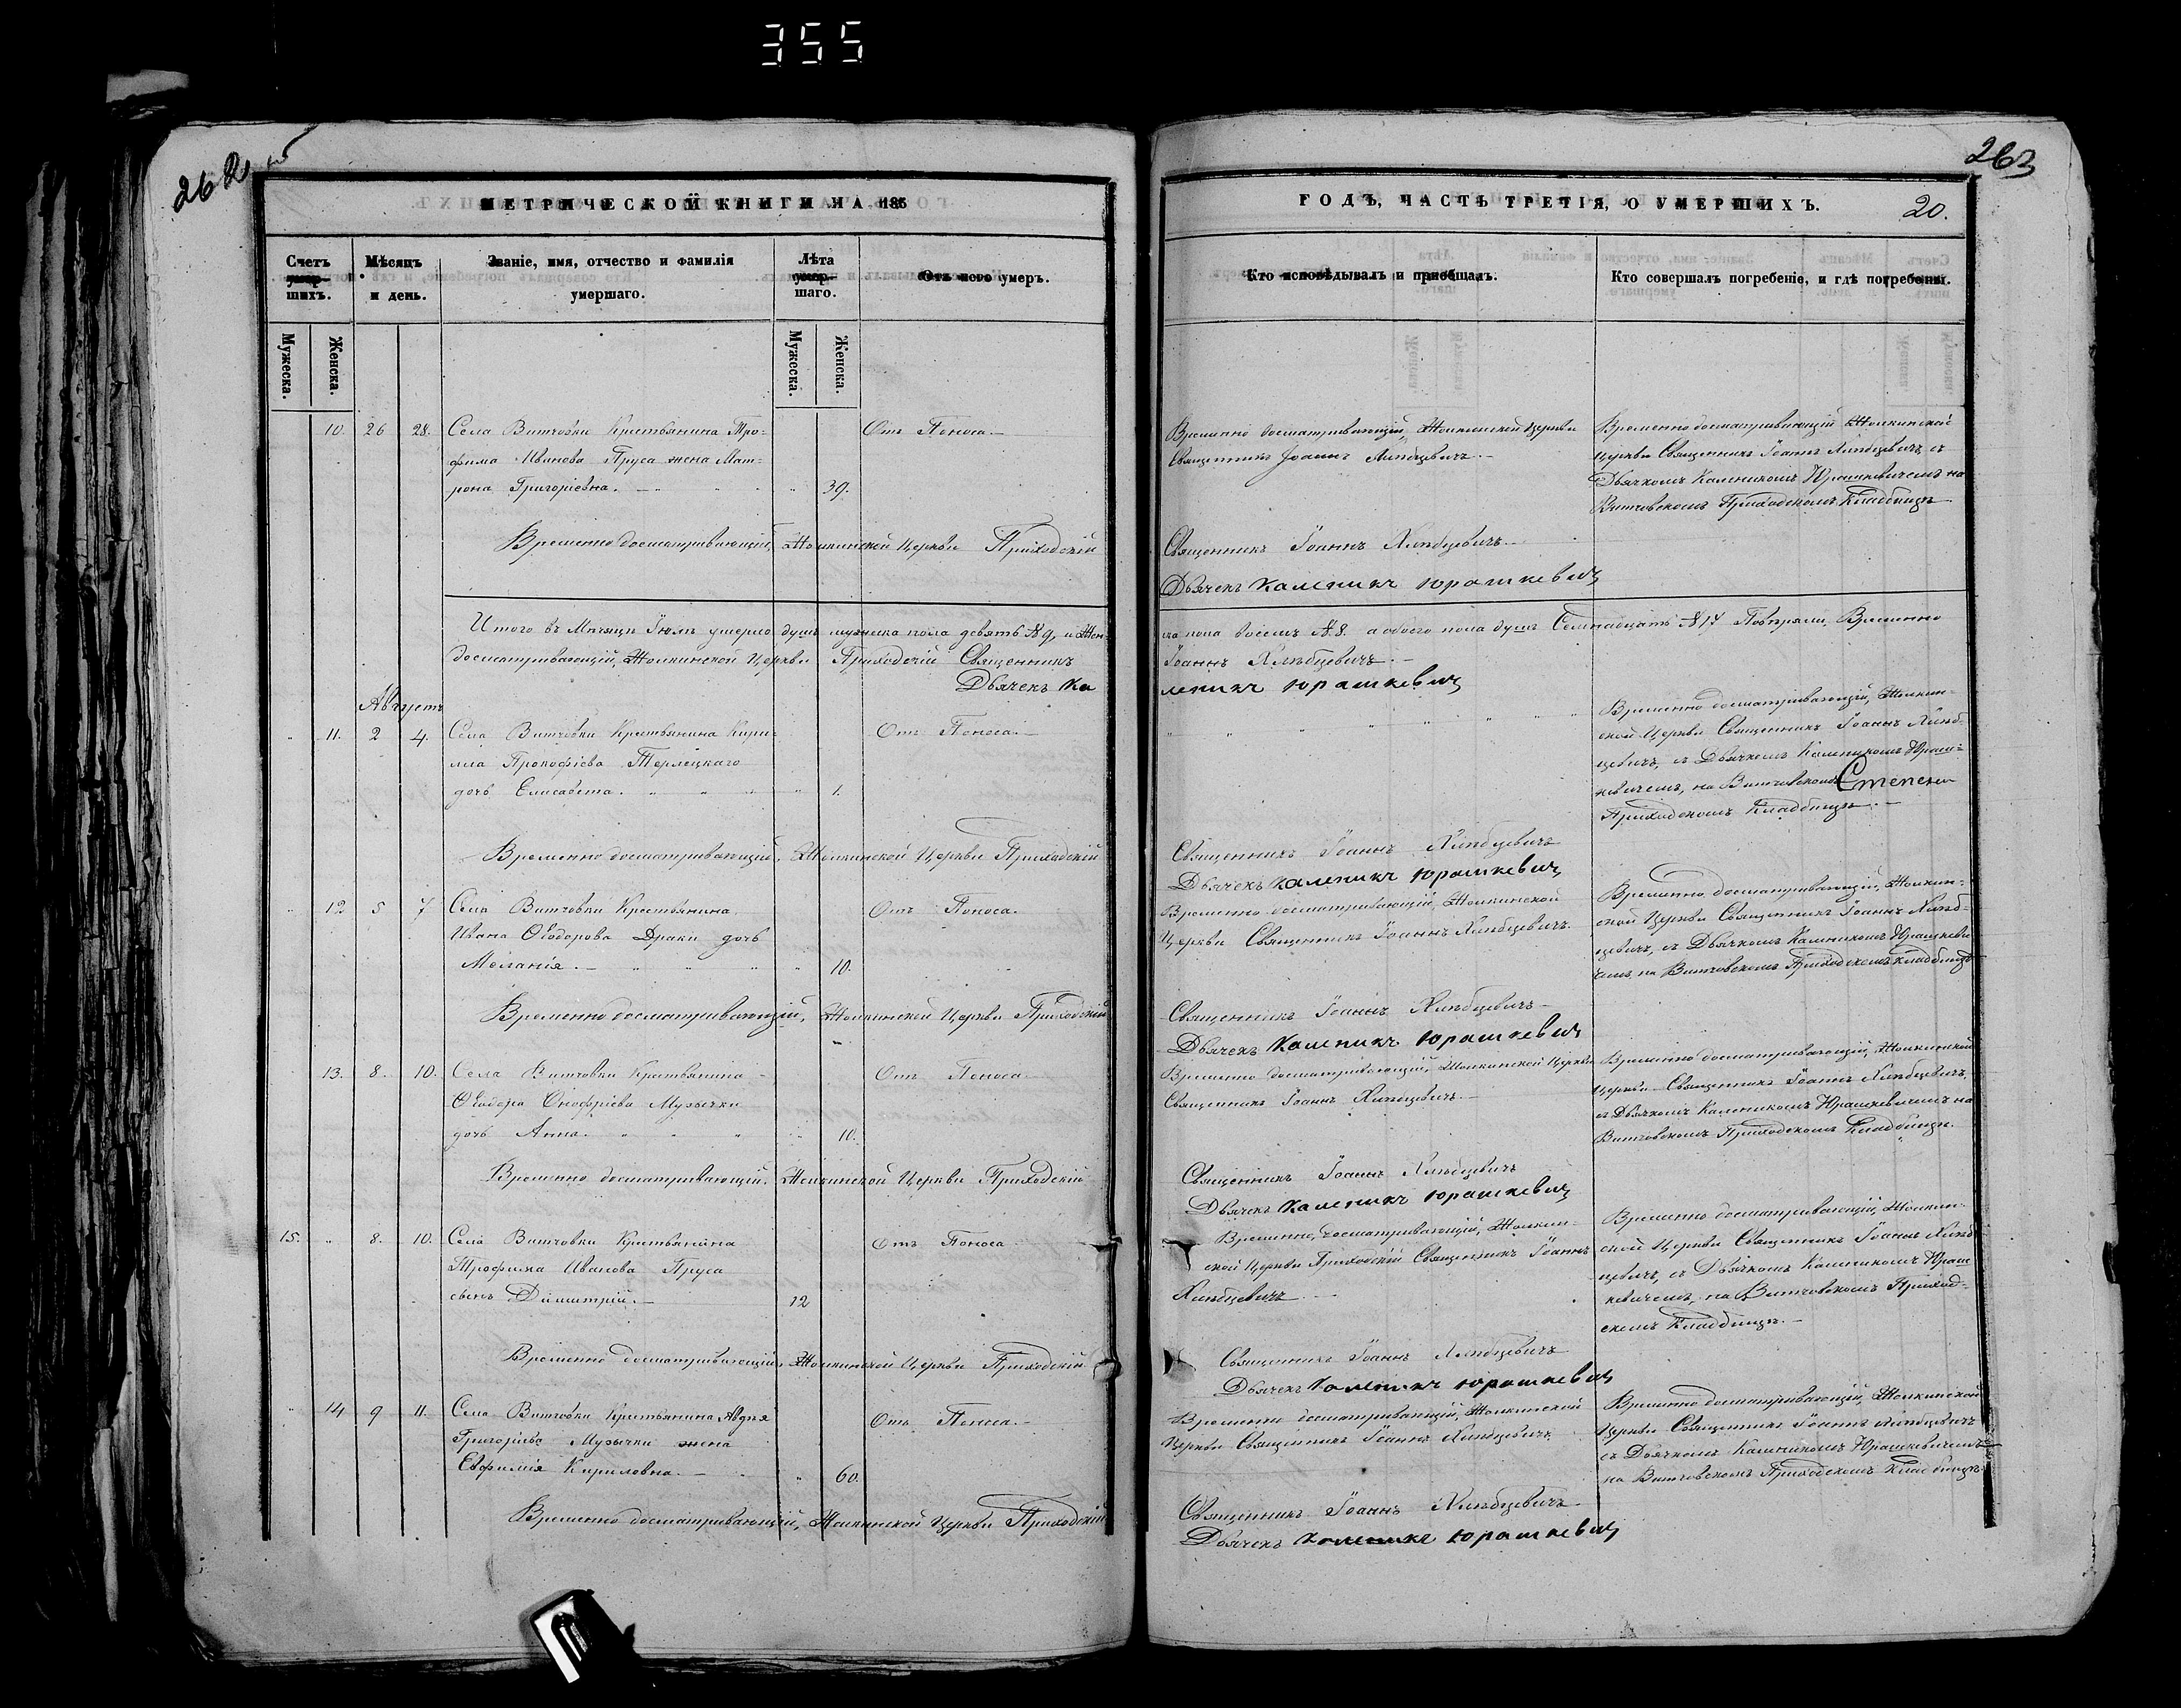 355
262
МЕТРИЧЕСКОЙ КНИГИ НА 185
Счетъ умер-шихъ.
Мѣсяцъ и день.
Званіе, имя, отчество и фамилія умершаго.
Лѣта умер-шаго.
Отъ чего умеръ.
Мужеска.
Женска.
Мужеска.
Женска.
10. 26 28. Села Витчовки Крестьянина Тро- Отъ Поноса.
фима Иванова Пруса жена Мат-
рона Григоріевна. 39.
Временно досматривающій, Жолкинской Церкви Приходскій
Итого въ Мѣсяцѣ Іюлѣ умерло душъ мужеска пола девять №9, и Жен-
досматривающій, Жолкинской Церкви Приходскій Священникъ
Дьячекъ Ка
Августъ
11. 2 4. Села Витчовки Крестьянина Кири- Отъ Поноса.
лла Прокофіева Терлецкаго
дочь Елисавета. 1.
Временно досматривающій, Жолкинской Церкви Приходскій
12 5 7 Села Витчовки Крестьянина Отъ Поноса.
Ивана Ѳеодорова Драки дочь
Меланія. 10.
Временно досматривающій, Жолкинской Церкви Приходскій
13. 8. 10. Села Витчовки Крестьянина Отъ Поноса
Ѳеодора Онофріева Музычки
дочь Анна. 10.
Временно досматривающій, Жолкинской Церкви Приходскій
15. 8. 10. Села Витчовки Крестьянина Отъ Поноса
Трофима Иванова Пруса
сынъ Димитрій. 12
Временно досматривающій, Жолкинской Церкви Приходскій
14 9 11. Села Витчовки Крестьянина Авдѣя Отъ Поноса.
Григоріева Музычки жена
Евфимія Кириловна. 60.
Временно досматривающій, Жолкинской Церкви Приходскій
263
ГОДЪ, ЧАСТЬ ТРЕТІЯ, О УМЕРШИХЪ.
20.
Кто исповѣдывалъ и пріобщалъ.
Кто совершалъ погребеніе, и гдѣ погребены.
Временно досматривающій, Жолкинской Церкви
Священникъ Іоаннъ Хлѣбцевичъ.
Временно досматривающій Жолкинской
Церкви Священникъ Іоаннъ Хлѣбцевичъ, съ
Дьячкомъ Каленикомъ Юрашкевичемъ на
Витчовскомъ Приходскомъ Кладбищѣ
Священникъ Іоаннъ Хлѣбцевичъ.
Дьячекъ Каленикъ Юрашкевич
ска пола восемь №8. а обоего пола душъ Семнадцать №17 Повѣряли, Временно
Іоаннъ Хлѣбцевичъ.
леникъ Юрашкевич
Временно досматривающій, Жолкин-
ской Церкви Священникъ Іоаннъ Хлѣб-
цевичъ, съ Дьячкомъ Каленикомъ Юраш-
кевичемъ, на Витчовскомъ
Приходскомъ Кладбищѣ.
Священникъ Іоаннъ Хлѣбцевичъ
Дьячекъ Каленикъ Юрашкевич
Временно досматривающій, Жолкинской
Церкви Священникъ Іоаннъ Хлѣбцевичъ.
Временно досматривающій, Жолкин-
ской Церкви Священникъ Іоаннъ Хлѣб-
цевичъ, съ Дьячкомъ Каленикомъ Юрашкеви
чемъ на Витчовскомъ Приходскомъ кладбищѣ
Священникъ Іоаннъ Хлѣбцевичъ
Дьячекъ Каленикъ Юрашкевич
Временно досматривающій, Жолкинской Церкви
Священникъ Іоаннъ Хлѣбцевичъ.
Временно досматривающій, Жолкинской
Церкви Священникъ Іоаннъ Хлѣбцевичъ,
съ Дьячкомъ Каленикомъ Юрашкевичемъ на
Витчовскомъ Приходскомъ Кладбищѣ.
Священникъ Іоаннъ Хлѣбцевичъ
Дьячекъ Каленикъ Юрашкевич
Временно, досматривающій, Жолкин-
ской Церкви Приходскій Священникъ Іоаннъ
Хлѣбцевичъ
Временно досматривающій, Жолкин-
ской Церкви Священникъ Іоаннъ Хлѣб
цевичъ, съ Дьячкомъ Каленикомъ Юраш
кевичемъ, на Витчовскомъ Приход-
скомъ Кладбищѣ.
Священникъ Іоаннъ Хлѣбцевичъ
Дьячекъ Каленикъ Юрашкевич
Временно досматривающій, Жолкинской
Церкви Священникъ Іоаннъ Хлѣбцевичъ.
Временно досматривающій, Жолкинской
Церкви Священникъ Іоаннъ Хлѣбцевичъ
съ Дьячкомъ Каленикомъ Юрашкевичемъ
на Витчовскомъ Приходскомъ Кладбищѣ.
Священникъ Іоаннъ Хлѣбцевичъ
Дьячекъ Каленикъ Юрашкевич